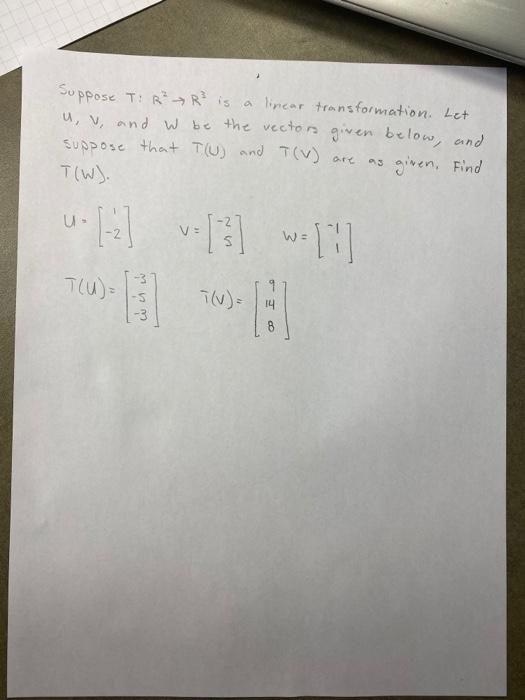 Suppose T: R² → R³ is a linear transformation. Let
u, v, and w be the vectors given below, and
suppose that T(U) and T(V) are as given. Find
T(W).
u = [1 -2] v = [-2 5] w = [-1 1]
T(U) = [-3 -5 -3] T(V) = [9 14 8]